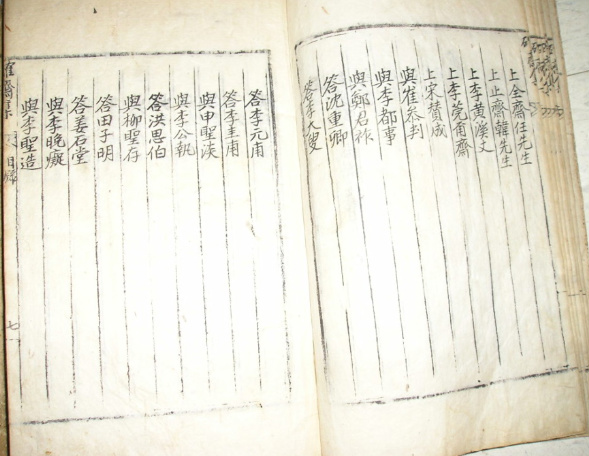 上全齋任先生
上止齋韓先生
上李黃澗丈
上李莞甫齋
上宋賛成
與崔叅判
與李都事
與鄭君祚
答沈重卿
答李大叟
答李元甫
答李圭甫
與申聖浹
與李公執
答洪思伯
與柳聖存
答田子明
答姜石堂
與李晚凝
與李聖造
齋集
目錄
七